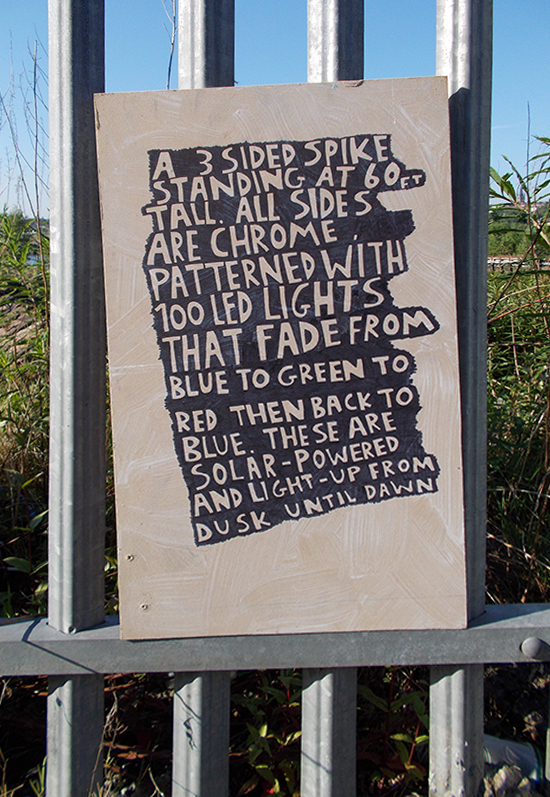 A 3 SIDED SPIKE
STANDING AT 60FT
TALL. ALL SIDES
ARE CHROME,
PATTERNED WITH
100 LED LIGHTS
THAT FADE FROM
BLUE TO GREEN TO
RED THEN BACK TO
BLUE. THESE ARE
SOLAR-POWERED
AND LIGHT-UP FROM
DUSK UNTIL DAWN